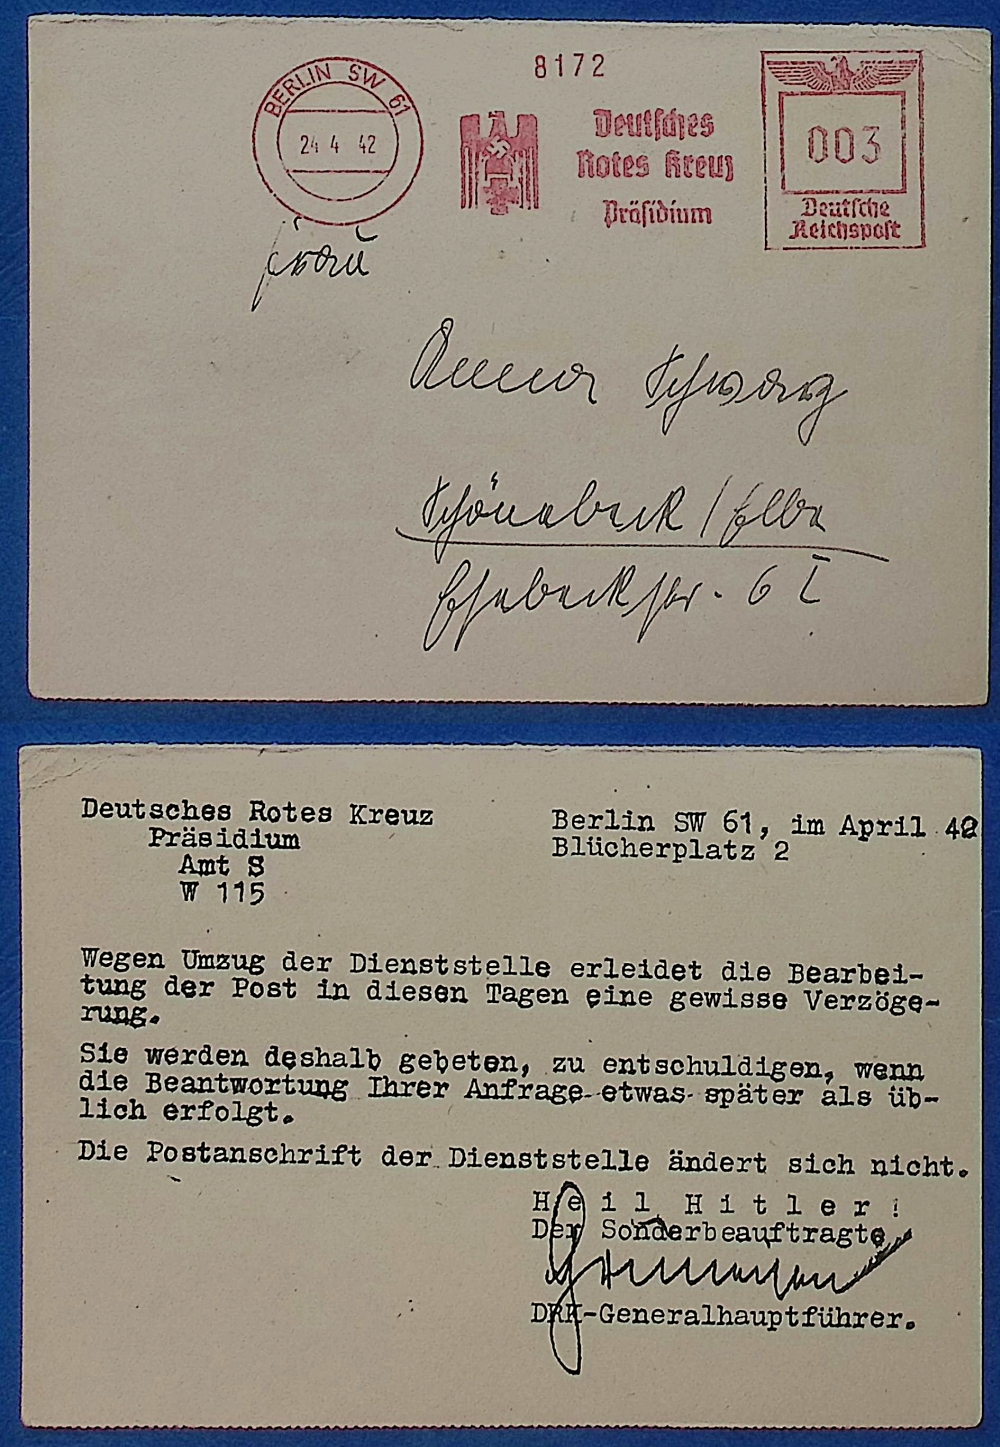 BERLIN SW 61
24 4 42
8172
Deutsches
Rotes Kreuz
Präsidium
003
Deutsche
Reichspost
Frau
Anna Schwarz
Schönebeck / Elbe
str. 6 I
Deutsches Rotes Kreuz
Präsidium
Amt S
W 115
Berlin SW 61, im April 42
Blücherplatz 2
Wegen Umzug der Dienststelle erleidet die Bearbei-
tung der Post in diesen Tagen eine gewisse Verzöge-
rung.
Sie werden deshalb gebeten, zu entschuldigen, wenn
die Beantwortung Ihrer Anfrage etwas später als üb-
lich erfolgt.
Die Postanschrift der Dienststelle ändert sich nicht.
H e i l H i t l e r !
Der Sonderbeauftragte
DRK-Generalhauptführer.